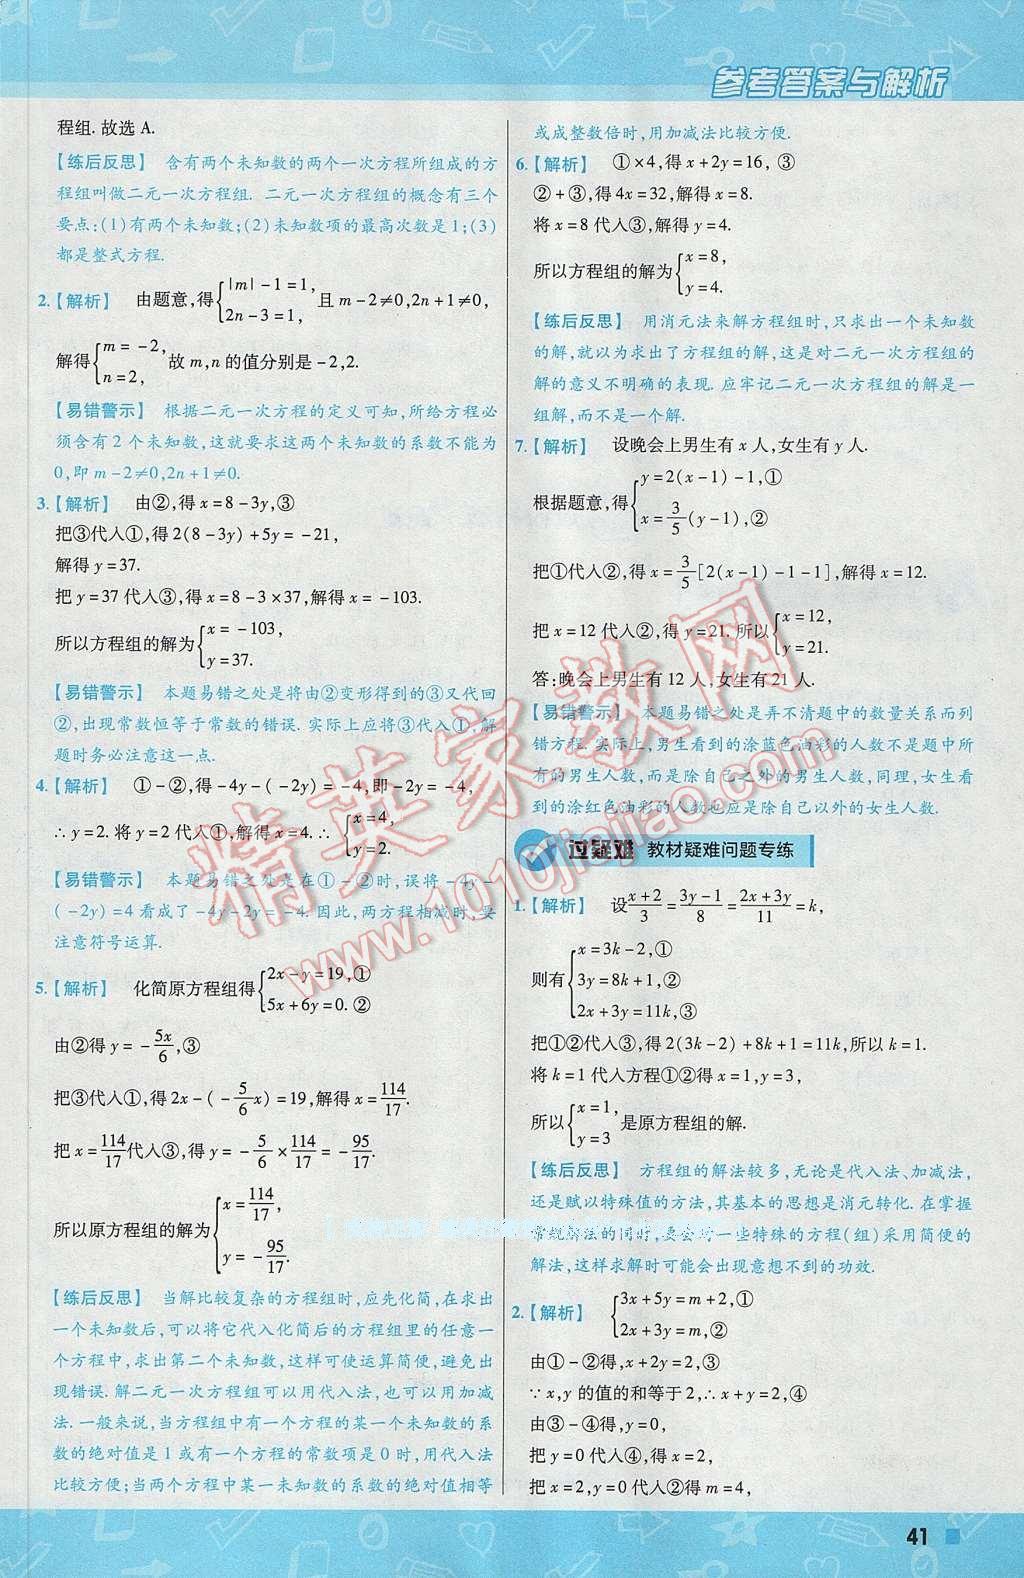 参考答案与解析
程组. 故选 A.
【练后反思】 含有两个未知数的两个一次方程所组成的方
程组叫做二元一次方程组. 二元一次方程组的概念有三个
要点:(1)有两个未知数;(2)未知数项的最高次数是1;(3)
都是整式方程.
2.【解析】 由题意,得{|m|-1=1, 2n-3=1, 且 m-2≠0,2n+1≠0,
解得{m=-2, n=2, 故 m,n 的值分别是-2,2.
【易错警示】 根据二元一次方程的定义可知,所给方程必
须含有 2 个未知数,这就要求这两个未知数的系数不能为
0,即 m-2≠0,2n+1≠0.
3.【解析】 由②,得 x=8-3y,③
把③代入①,得 2(8-3y)+5y=-21,
解得 y=37.
把 y=37 代入③,得 x=8-3×37,解得 x=-103.
所以方程组的解为{x=-103, y=37.
【易错警示】 本题易错之处是将由②变形得到的③又代回
②,出现常数恒等于常数的错误. 实际上应将③代入①,解
题时务必注意这一点.
4.【解析】 ①-②,得-4y-(-2y)=-4,即-2y=-4,
∴y=2. 将 y=2 代入①,解得 x=4. ∴{x=4, y=2.
【易错警示】 本题易错之处是在①-②时,误将-4y-
(-2y)=4 看成了-4y-2y=-4. 因此,两方程相减时,要
注意符号运算.
5.【解析】 化简原方程组得{2x-y=19,① 5x+6y=0.②
由②得 y=-5x/6,③
把③代入①,得 2x-(-5/6x)=19,解得 x=114/17.
把 x=114/17代入③,得 y=-5/6×114/17=-95/17.
所以原方程组的解为{x=114/17, y=-95/17.
【练后反思】 当解比较复杂的方程组时,应先化简,在求出
一个未知数后,可以将它代入化简后的方程组里的任意一
个方程中,求出第二个未知数,这样可使运算简便,避免出
现错误. 解二元一次方程组可以用代入法,也可以用加减
法. 一般来说,当方程组中有一个方程的某一个未知数的系
数的绝对值是 1 或有一个方程的常数项是 0 时,用代入法
比较方便;当两个方程中某一未知数的系数的绝对值相等
或成整数倍时,用加减法比较方便.
6.【解析】 ①×4,得 x+2y=16,③
②+③,得 4x=32,解得 x=8.
将 x=8 代入③,解得 y=4.
所以方程组的解为{x=8, y=4.
【练后反思】 用消元法来解方程组时,只求出一个未知数
的解,就以为求出了方程组的解,这是对二元一次方程组的
解的意义不明确的表现. 应牢记二元一次方程组的解是一
组解,而不是一个解.
7.【解析】 设晚会上男生有 x 人,女生有 y 人.
根据题意,得{y=2(x-1)-1,① x=3/5(y-1),②
把①代入②,得 x=3/5[2(x-1)-1-1],解得 x=12.
把 x=12 代入②,得 y=21. 所以{x=12, y=21.
答:晚会上男生有 12 人,女生有 21 人.
【易错警示】 本题易错之处是弄不清题中的数量关系而列
错方程. 实际上,男生看到的涂蓝色油彩的人数不是题中所
有的男生人数,而是除自己之外的男生人数,同理,女生看
到的涂红色油彩的人数也应是除自己以外的女生人数.
过疑难 教材疑难问题专练
1.【解析】 设(x+2)/3=(3y-1)/8=(2x+3y)/11=k,
则有{x=3k-2,① 3y=8k+1,② 2x+3y=11k,③
把①②代入③,得 2(3k-2)+8k+1=11k,所以 k=1.
将 k=1 代入方程①②得 x=1,y=3,
所以{x=1, y=3 是原方程组的解.
【练后反思】 方程组的解法较多,无论是代入法、加减法,
还是赋以特殊值的方法,其基本的思想是消元转化. 在掌握
常规解法的同时,要会对一些特殊的方程(组)采用简便的
解法,这样求解时可能会出现意想不到的功效.
2.【解析】 {3x+5y=m+2,① 2x+3y=m,②
由①-②得,x+2y=2,③
∵x,y 的值的和等于 2,∴x+y=2,④
由③-④得,y=0,
把 y=0 代入④,得 x=2,
把 x=2,y=0 代入②得 m=4,
41
精英家教网
www.1010jiajiao.com